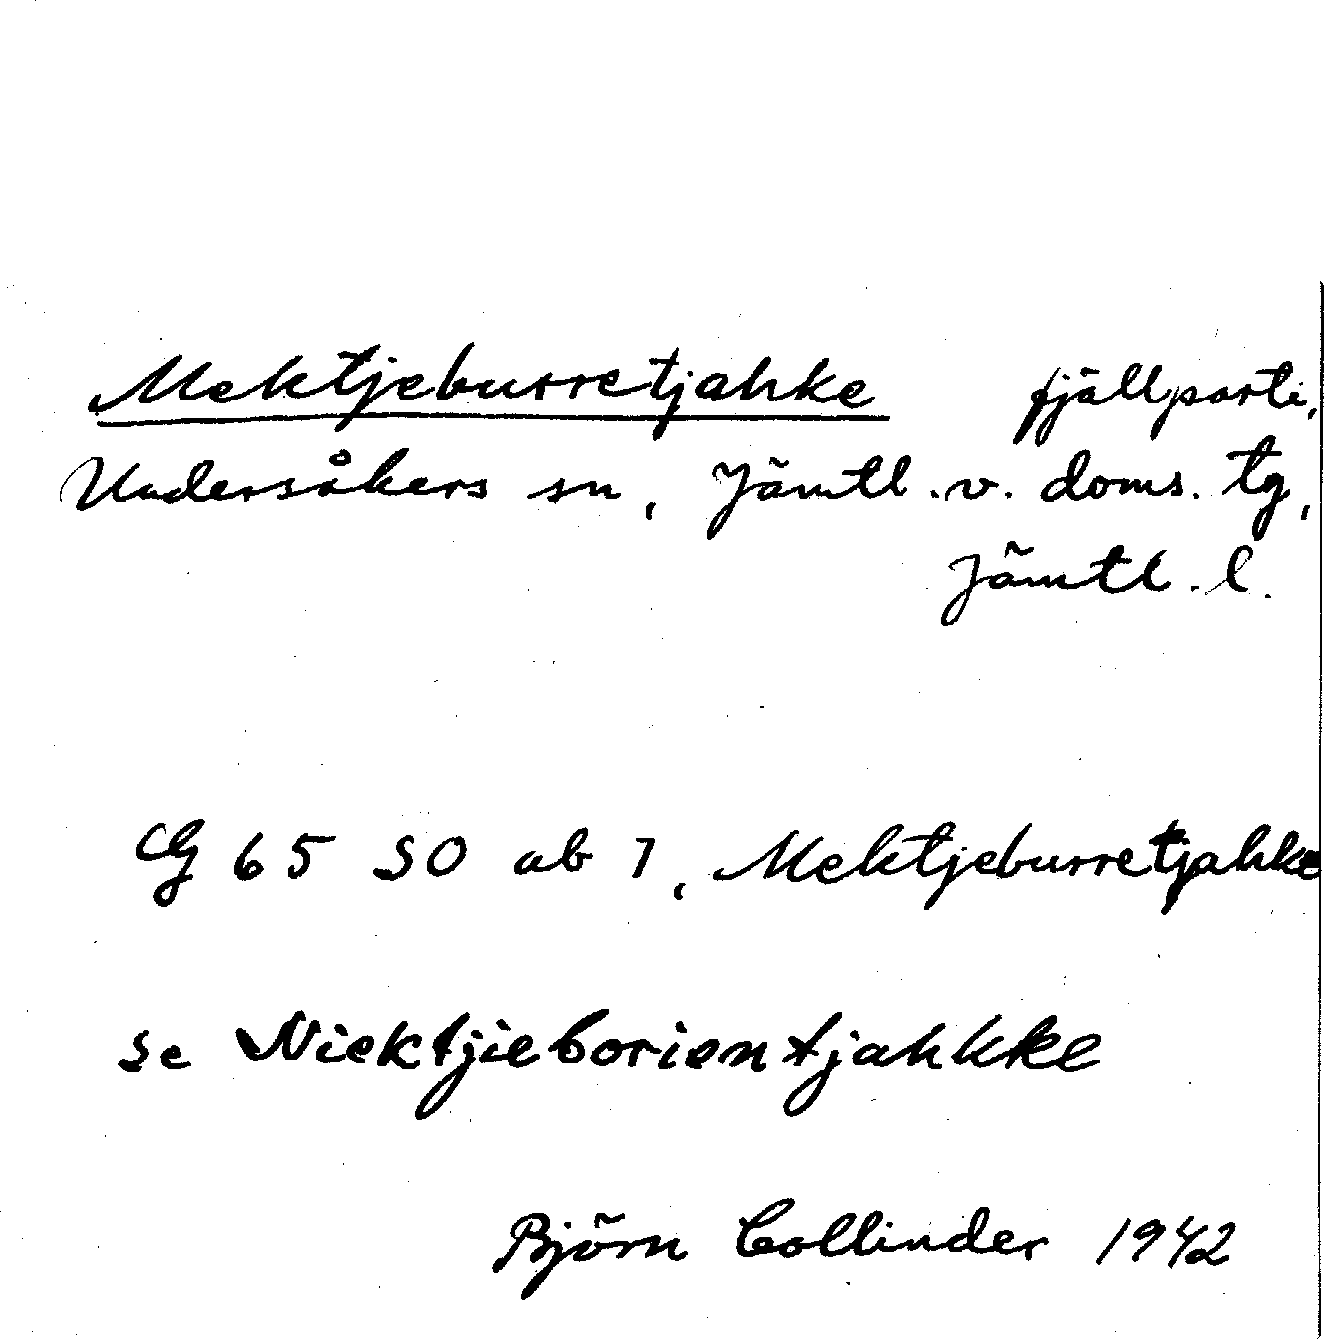 Mektjeburretjahke fjällparti,
Undersåkers sn, Jämtl. v. doms. tg,
Jämtl. l.
CG 65 SO ab 7, Mektjeburretjahke
se Niektjieborientjahkke
Björn Collinder 1942